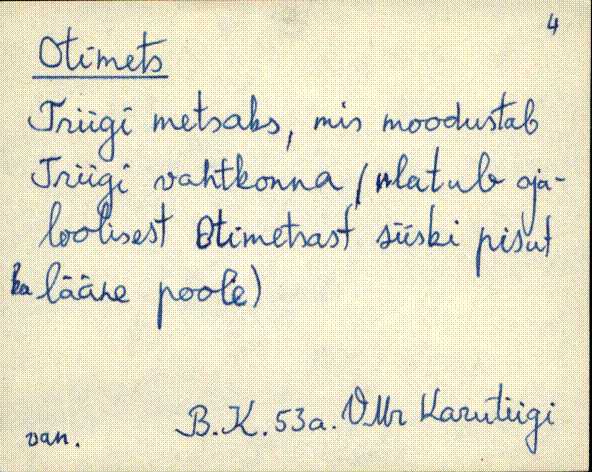 4
Otimets
Triigi metsaks, mis moodustab
Triigi vahtkonna (ulatub aja-
loolisest Otimetsast siiski pisut
ka lääne poole)
van. B.K. 53a. VMr Karutiigi